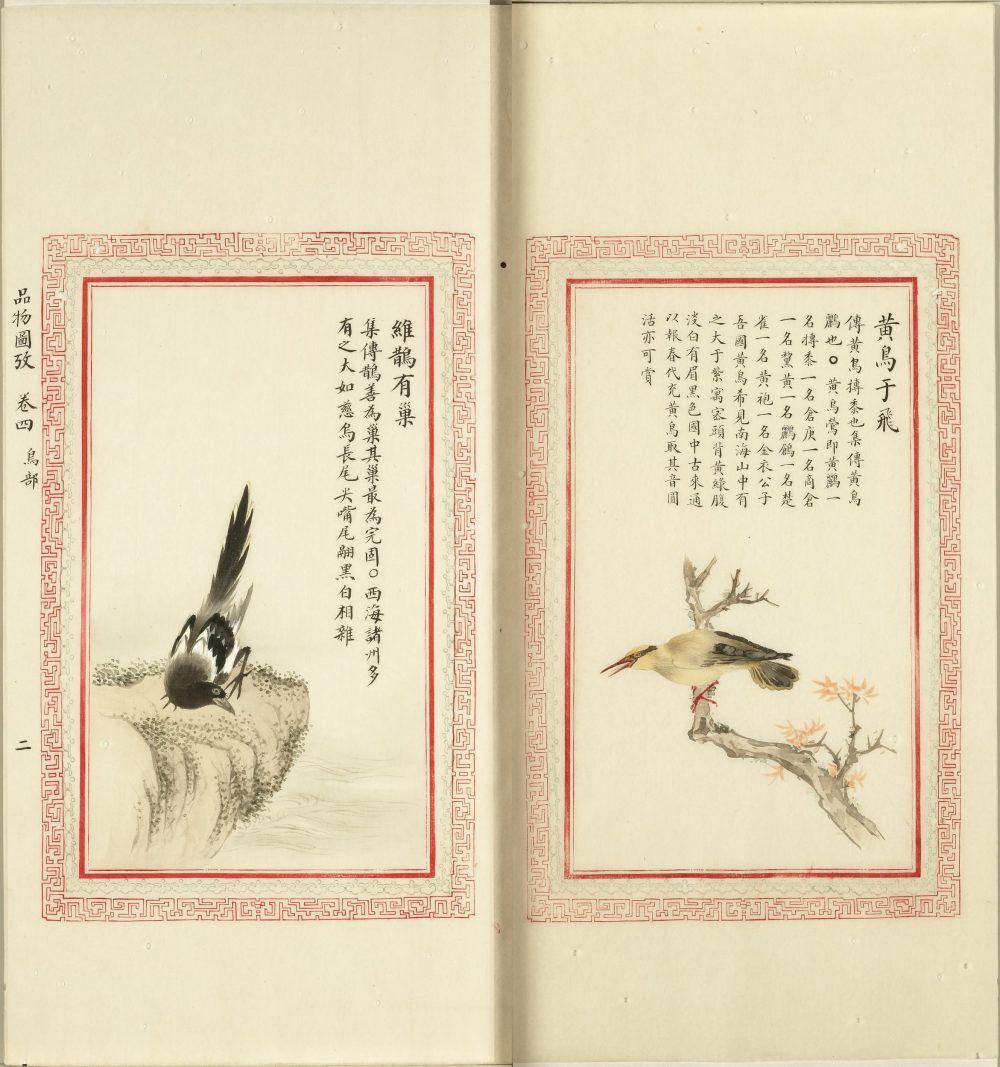 黃鳥于飛
傳黃鳥摶黍也集傳黃鳥
鸝也○黃鳥鶯即黃鸝一
名摶黍一名倉庚一名商倉
一名鵹黃一名鸝鶹一名楚
雀一名黃袍一名金衣公子
吾國黃鳥希見南海山中有
之大于紫寫窓頭背黃綠腹
淡白有眉黑色國中古來通
以報春代充黃鳥取其音圓
活亦可賞
維鵲有巢
集傳鵲善為巢其巢最為完固○西海諸州多
有之大如慈烏長尾尖嘴尾翮黑白相雜
品物圖攷 卷四 鳥部 二